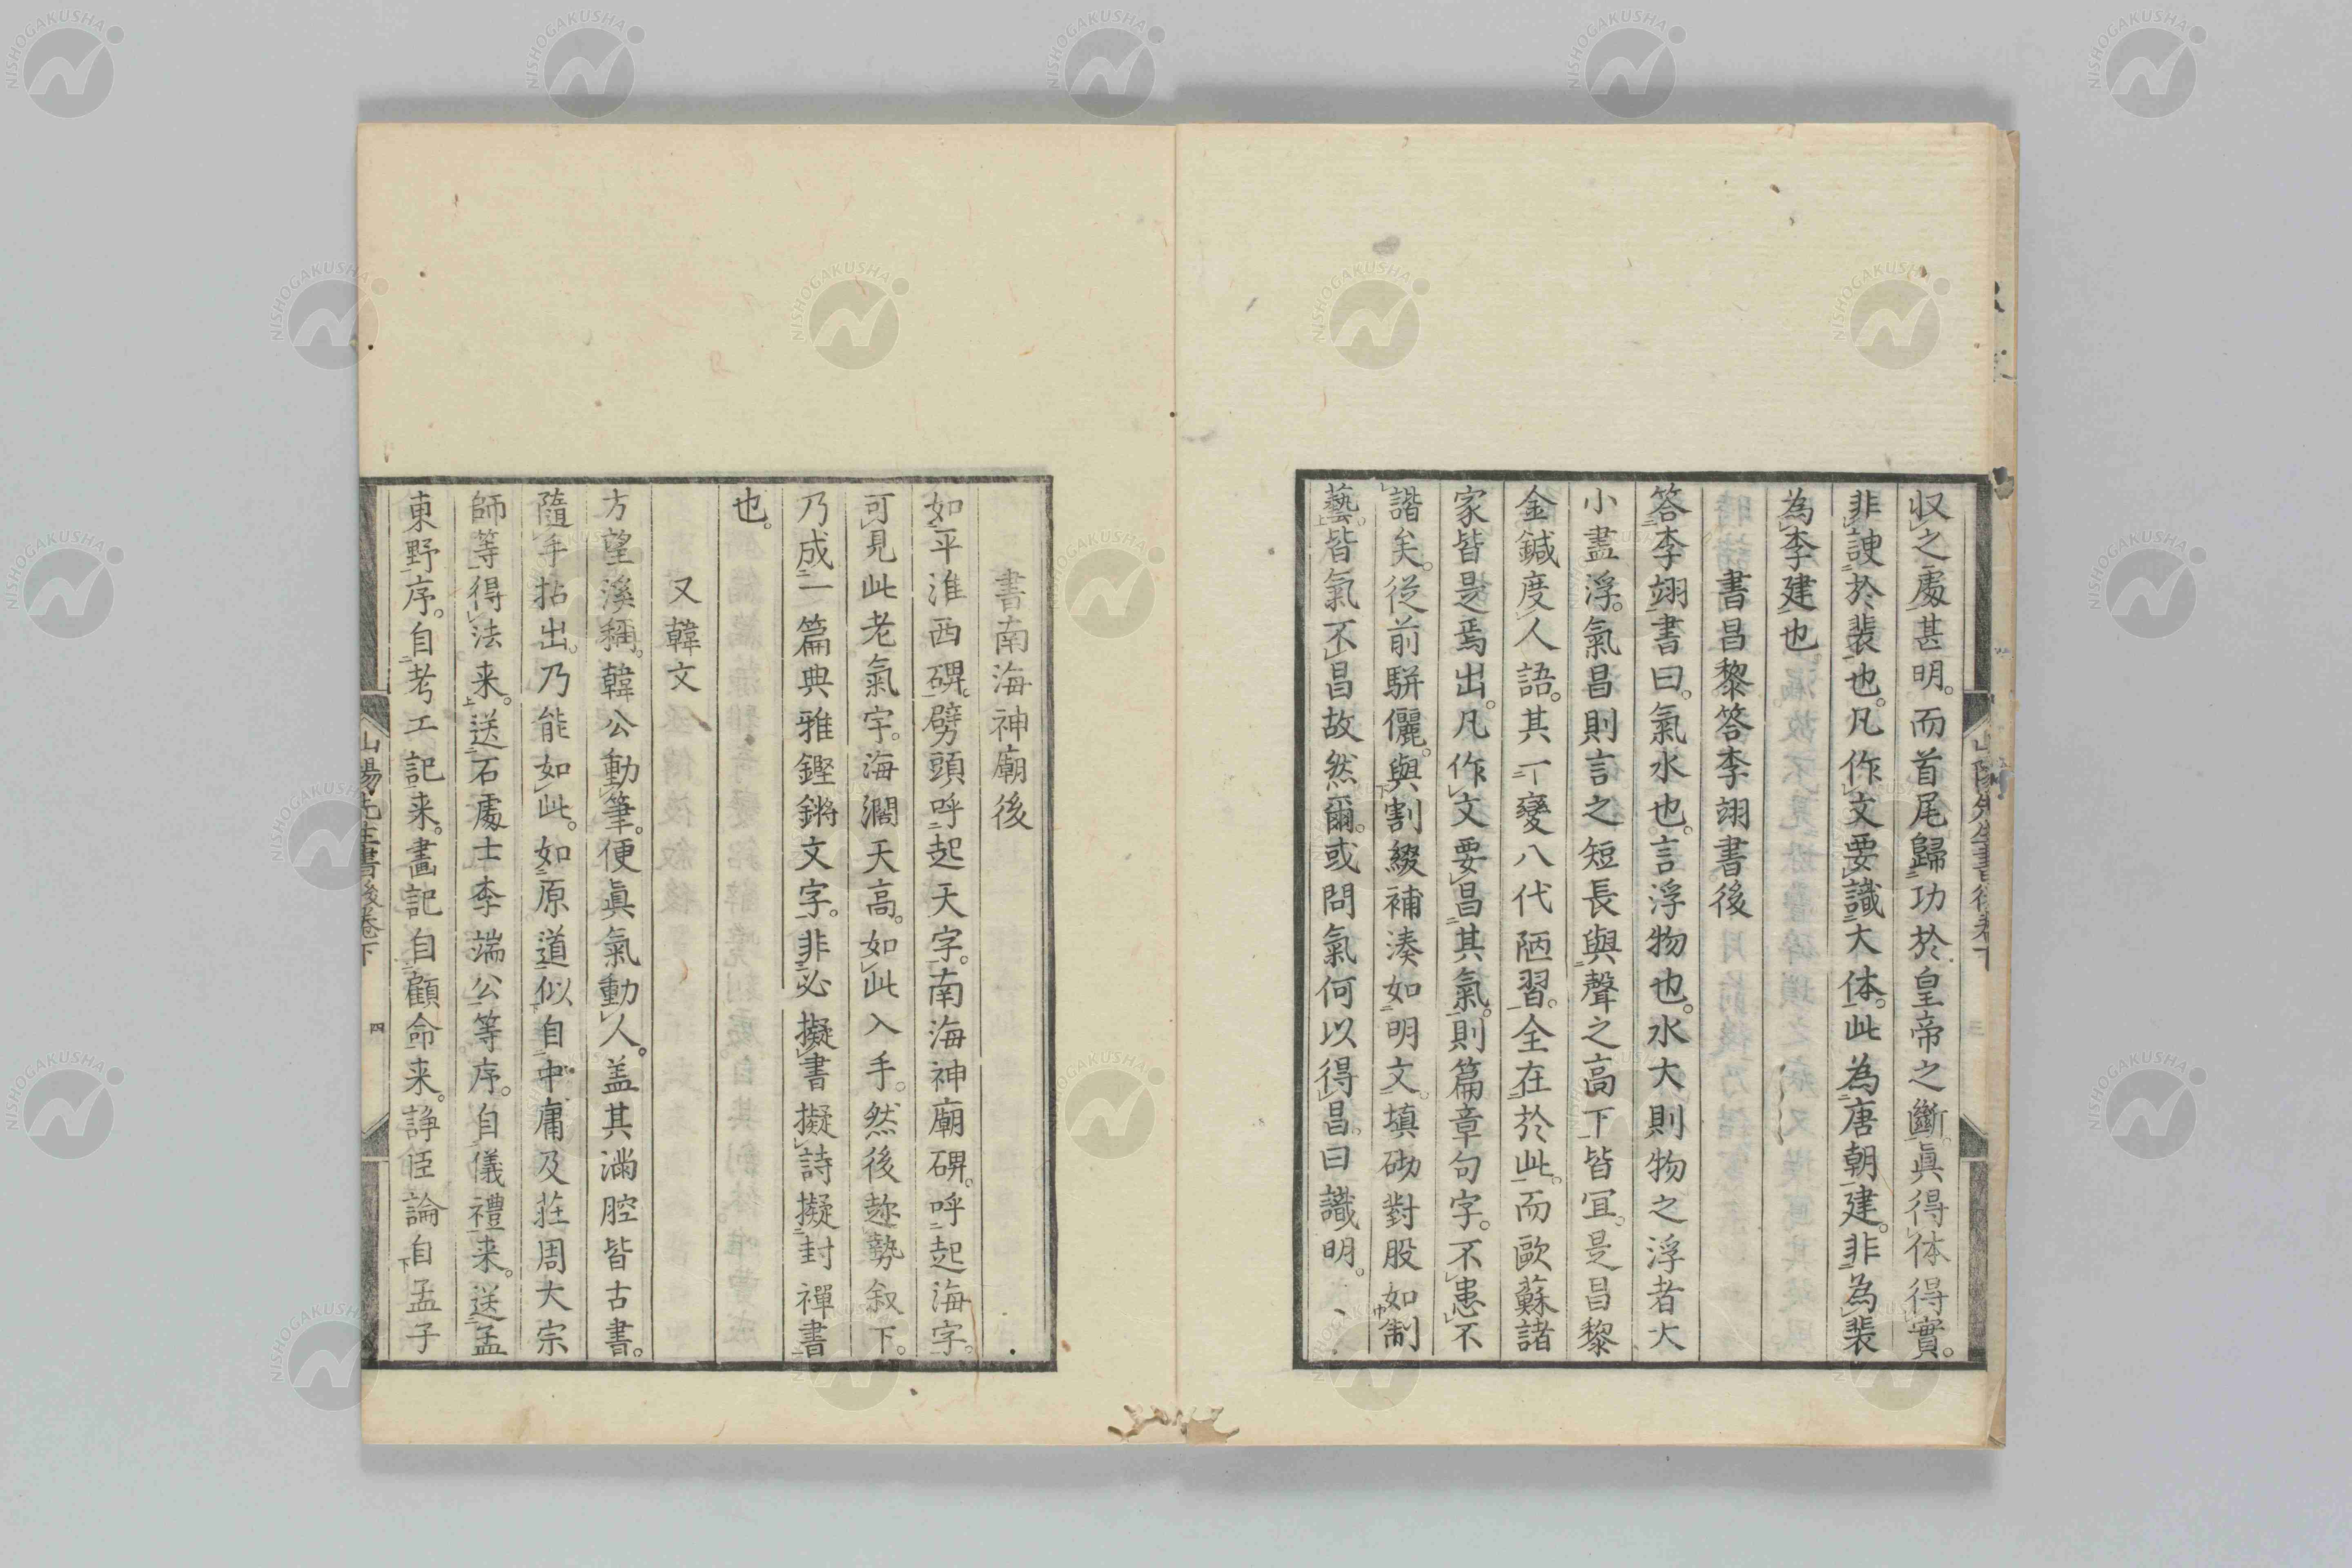 収之處甚明。而首尾歸功於皇帝之斷。眞得体得實。
非諛於裴也。凡作文要識大体。此為唐朝建。非為裴
為李建也。
書昌黎答李翊書後
答李翊書曰。氣水也。言浮物也。水大則物之浮者大
小盡浮。氣昌則言之短長與聲之高下皆宜。是昌黎
金鍼度人語。其一變八代陋習。全在於此。而歐蘇諸
家皆是焉出。凡作文要昌其氣。則篇章句字。不患不
諧矣。從前駢儷。與割綴補湊如明文。填砌對股如制
藝。皆氣不昌故然爾。或問氣何以得昌。曰識明。
山陽先生書後卷下
三
書南海神廟後
如平淮西碑。劈頭呼起天字。南海神廟碑。呼起海字。
可見此老氣宇。海濶天高。如此入手。然後趂勢叙下。
乃成一篇典雅鏗鏘文字。非必擬書擬詩擬封禪書
也。
又韓文
方望溪稱。韓公動筆。便眞氣動人。盖其滿腔皆古書。
隨手拈出。乃能如此。如原道似自中庸及莊周大宗
師等得法来。送石處士李端公等序。自儀禮来。送孟
東野序。自考工記来。畫記自顧命来。諍臣論自孟子
山陽先生書後卷下
四
NISHOGAKUSHA